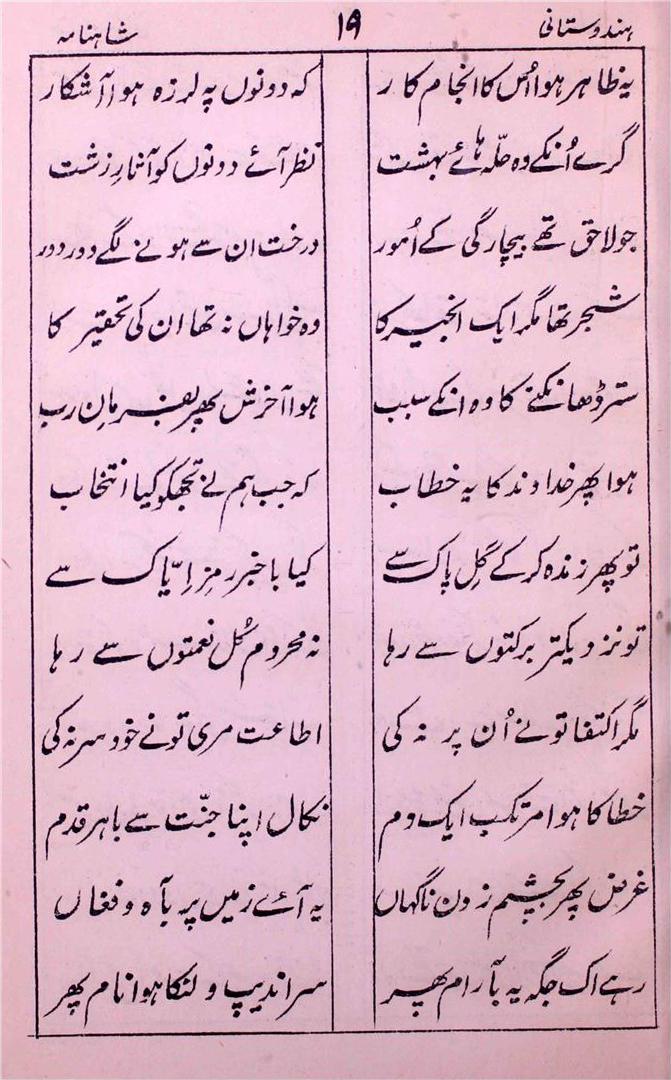 ہندوستانی ۱۹ شاہنامہ
یہ ظاہر ہوا اُس کا انجام کار کہ دونوں پہ لرزہ ہوا آشکار
گرے اُنکے وہ حلّہ ہائے بہشت نظر آئے دونوں کو آثارِ زشت
جو لاحق تھے بیچارگی کے اُمور درخت ان سے ہونے لگے دور دور
شجر تھا مگر ایک انجیر کا وہ خواہاں نہ تھا ان کی تحقیر کا
ستر ڈھانکنے کا وہ انکے سبب ہوا آخرش پھر بفرمانِ رب
ہوا پھر خداوند کا یہ خطاب کہ جب ہم نے تجھکو کیا انتخاب
تو پھر زندہ کر کے گِلِ پاک سے کیا باخبر رمزِ اِیّاک سے
تو نزدیکتر برکتوں سے رہا نہ محروم کُل نعمتوں سے رہا
مگر اکتفا تونے اُن پر نہ کی اطاعت مری تونے خود سر نہ کی
خطا کا ہوا مرتکب ایک دم نکال اپنا جنّت سے باہر قدم
غرض پھر بچشم زدن ناگہاں یہ آئے زمیں پر بآہ و فغاں
رہے اک جگہ یہ بآرام پھر سراندیپ و لنکا ہوا نام پھر